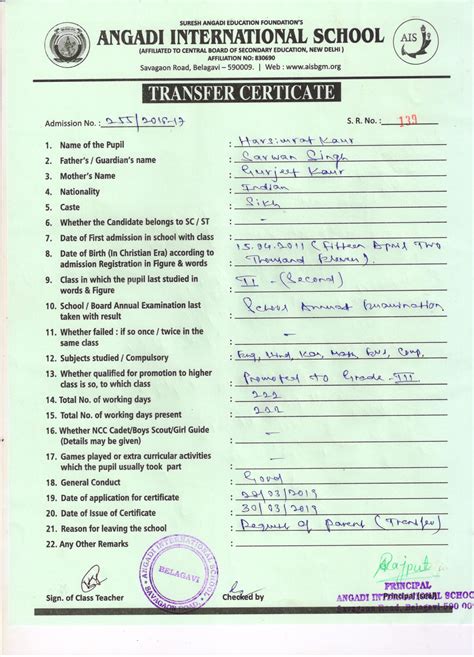 SURESH ANGADI EDUCATION FOUNDATION'S
ANGADI INTERNATIONAL SCHOOL
(AFFILIATED TO CENTRAL BOARD OF SECONDARY EDUCATION, NEW DELHI )
AFFILIATION NO: 830690
Savagaon Road, Belagavi – 590009. | Web : www.aisbgm.org
AIS
TRANSFER CERTICATE
Admission No. : 255/2016-17
S. R. No. : 139
1. Name of the Pupil : Harsimrat Kaur
2. Father's / Guardian's name : Sarwan Singh
3. Mother's Name : Gurjeet Kaur
4. Nationality : Indian
5. Caste : Sikh
6. Whether the Candidate belongs to SC / ST : –
7. Date of First admission in school with class :
8. Date of Birth (In Christian Era) according to : 15.04.2011 (Fifteen April Two
admission Registration in Figure & words Thousand Eleven).
9. Class in which the pupil last studied in : II - (Second)
words & Figure
10. School / Board Annual Examination last : School Annual Examination
taken with result
11. Whether failed : if so once / twice in the : –
same class
12. Subjects studied / Compulsory : Eng, Hind, Kan, Math, Evs, Comp,
13. Whether qualified for promotion to higher : Promoted to Grade - III
class is so, to which class
14. Total No. of working days : 222
15. Total No. of working days present : 222
16. Whether NCC Cadet/Boys Scout/Girl Guide : –
(Details may be given)
17. Games played or extra curricular activities : –
which the pupil usually took part
18. General Conduct : Good
19. Date of application for certificate : 20/03/2019
20. Date of Issue of Certificate : 30/03/2019
21. Reason for leaving the school : Request of Parent (Transfer)
22. Any Other Remarks :
ANGADI INTERNATIONAL SCHOOL
BELAGAVI
SAVAGAON ROAD
Rajput
PRINCIPAL
Sign. of Class Teacher
Checked by
Principal
ANGADI INTERNATIONAL SCHOOL
Savagaon Road, Belagavi 590 009